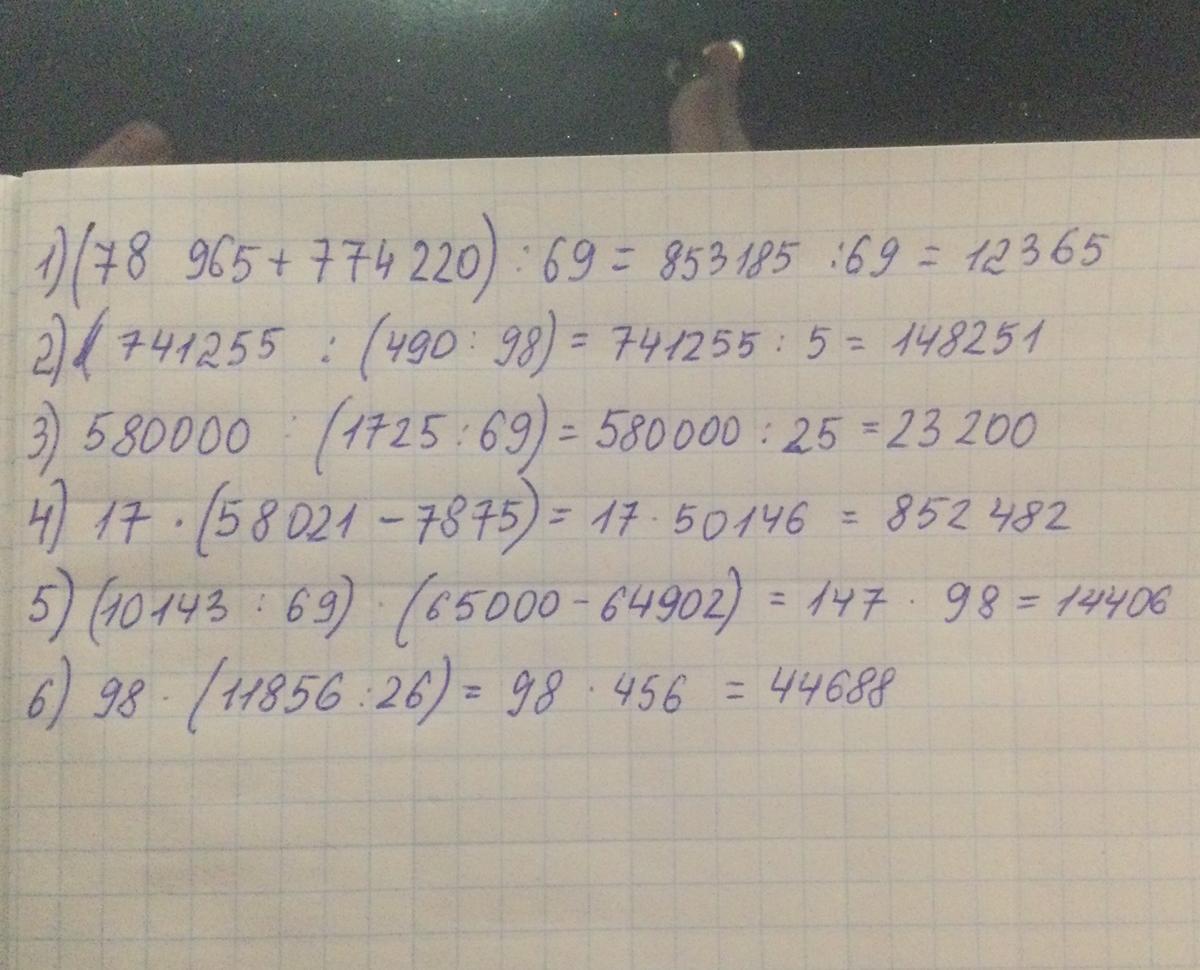 1) (78 965 + 774 220) : 69 = 853185 : 69 = 12365
2) 741255 : (490 : 98) = 741255 : 5 = 148251
3) 580000 : (1725 : 69) = 580000 : 25 = 23 200
4) 17 · (58021 - 7875) = 17 · 50146 = 852 482
5) (10143 : 69) · (65000 - 64902) = 147 · 98 = 14406
6) 98 · (11856 : 26) = 98 · 456 = 44688